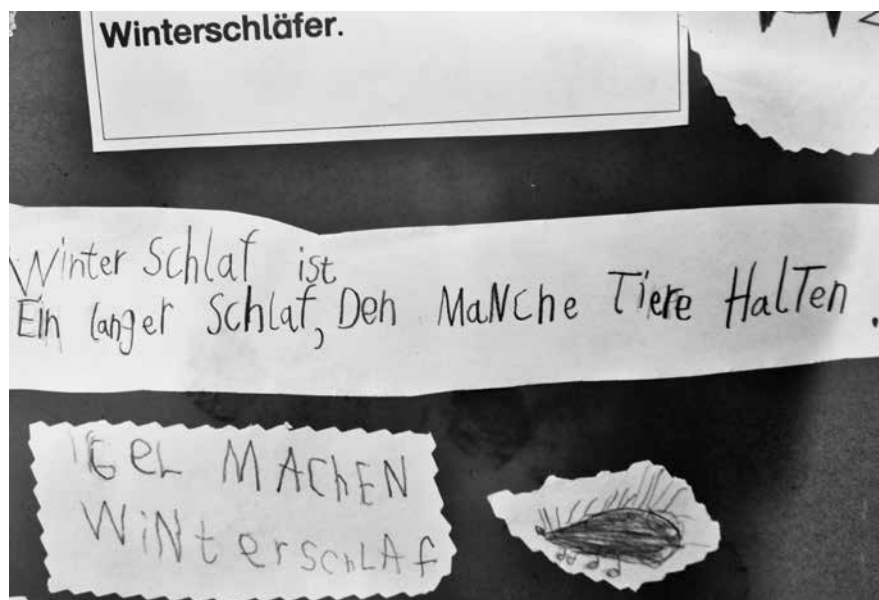 Winterschläfer.
Winter Schlaf ist
Ein langer Schlaf, Den MaNche Tiere HalTen.
iGeL MAChEN
WiNterschLAf